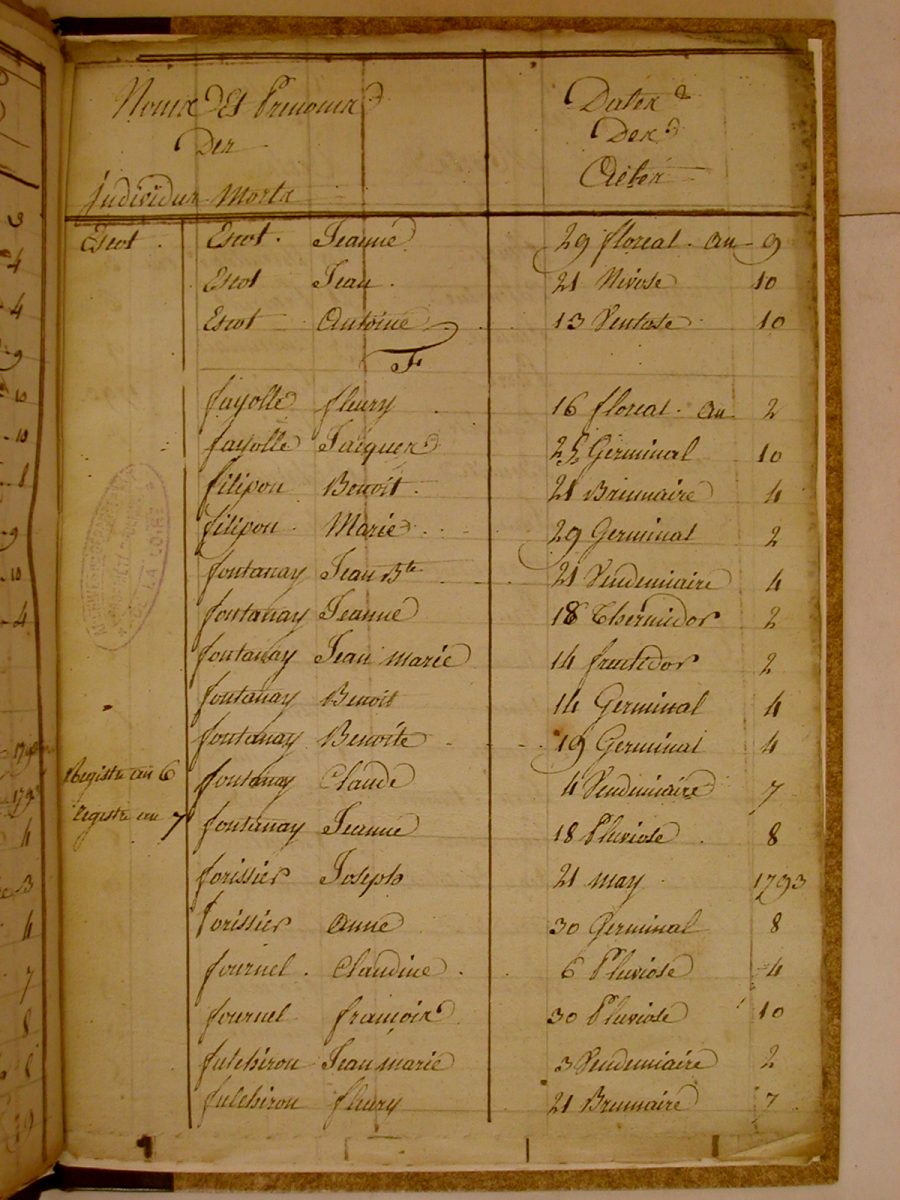 Noms Et Prenoms
Des
Individus Morts
Dates
Des
Actes
Escot. Escot. Jeanne 29 floreal. an 9
Escot Jean. 21 Nivose 10
Escot Antoine 13 Ventose 10
F
fayolle fleury 16 floreal. an 2
fayolle Jacques Germinal 10
filipon Benoit. 21 Brumaire 4
filipon. Marie 29 Germinal 2
fontanay Jean Bte 21 Vendemiaire 4
fontanay Jeanne 18 Thermidor 2
fontanay Jean marie 14 fructidor 2
fontanay Benoit 14 Germinal 4
fontanay Benoite 19 Germinal 4
Registre an 6 fontanay Claude 4 Vendemiaire 7
Registre an 7 fontanay Jeanne 18 Pluviose 8
forissier Joseph 21 may 1793
forissier anne 30 Germinal 8
fournel. Claudine. 6 Pluviose 4
fournel francois 30 Pluviose 10
fulchiron Jean marie 3 Vendemiaire 2
fulchiron fleury 21 Brumaire 7
LA LOIRE
3
4
4
9
10
10
8
9
10
4
4
3
4
7
8
8
9